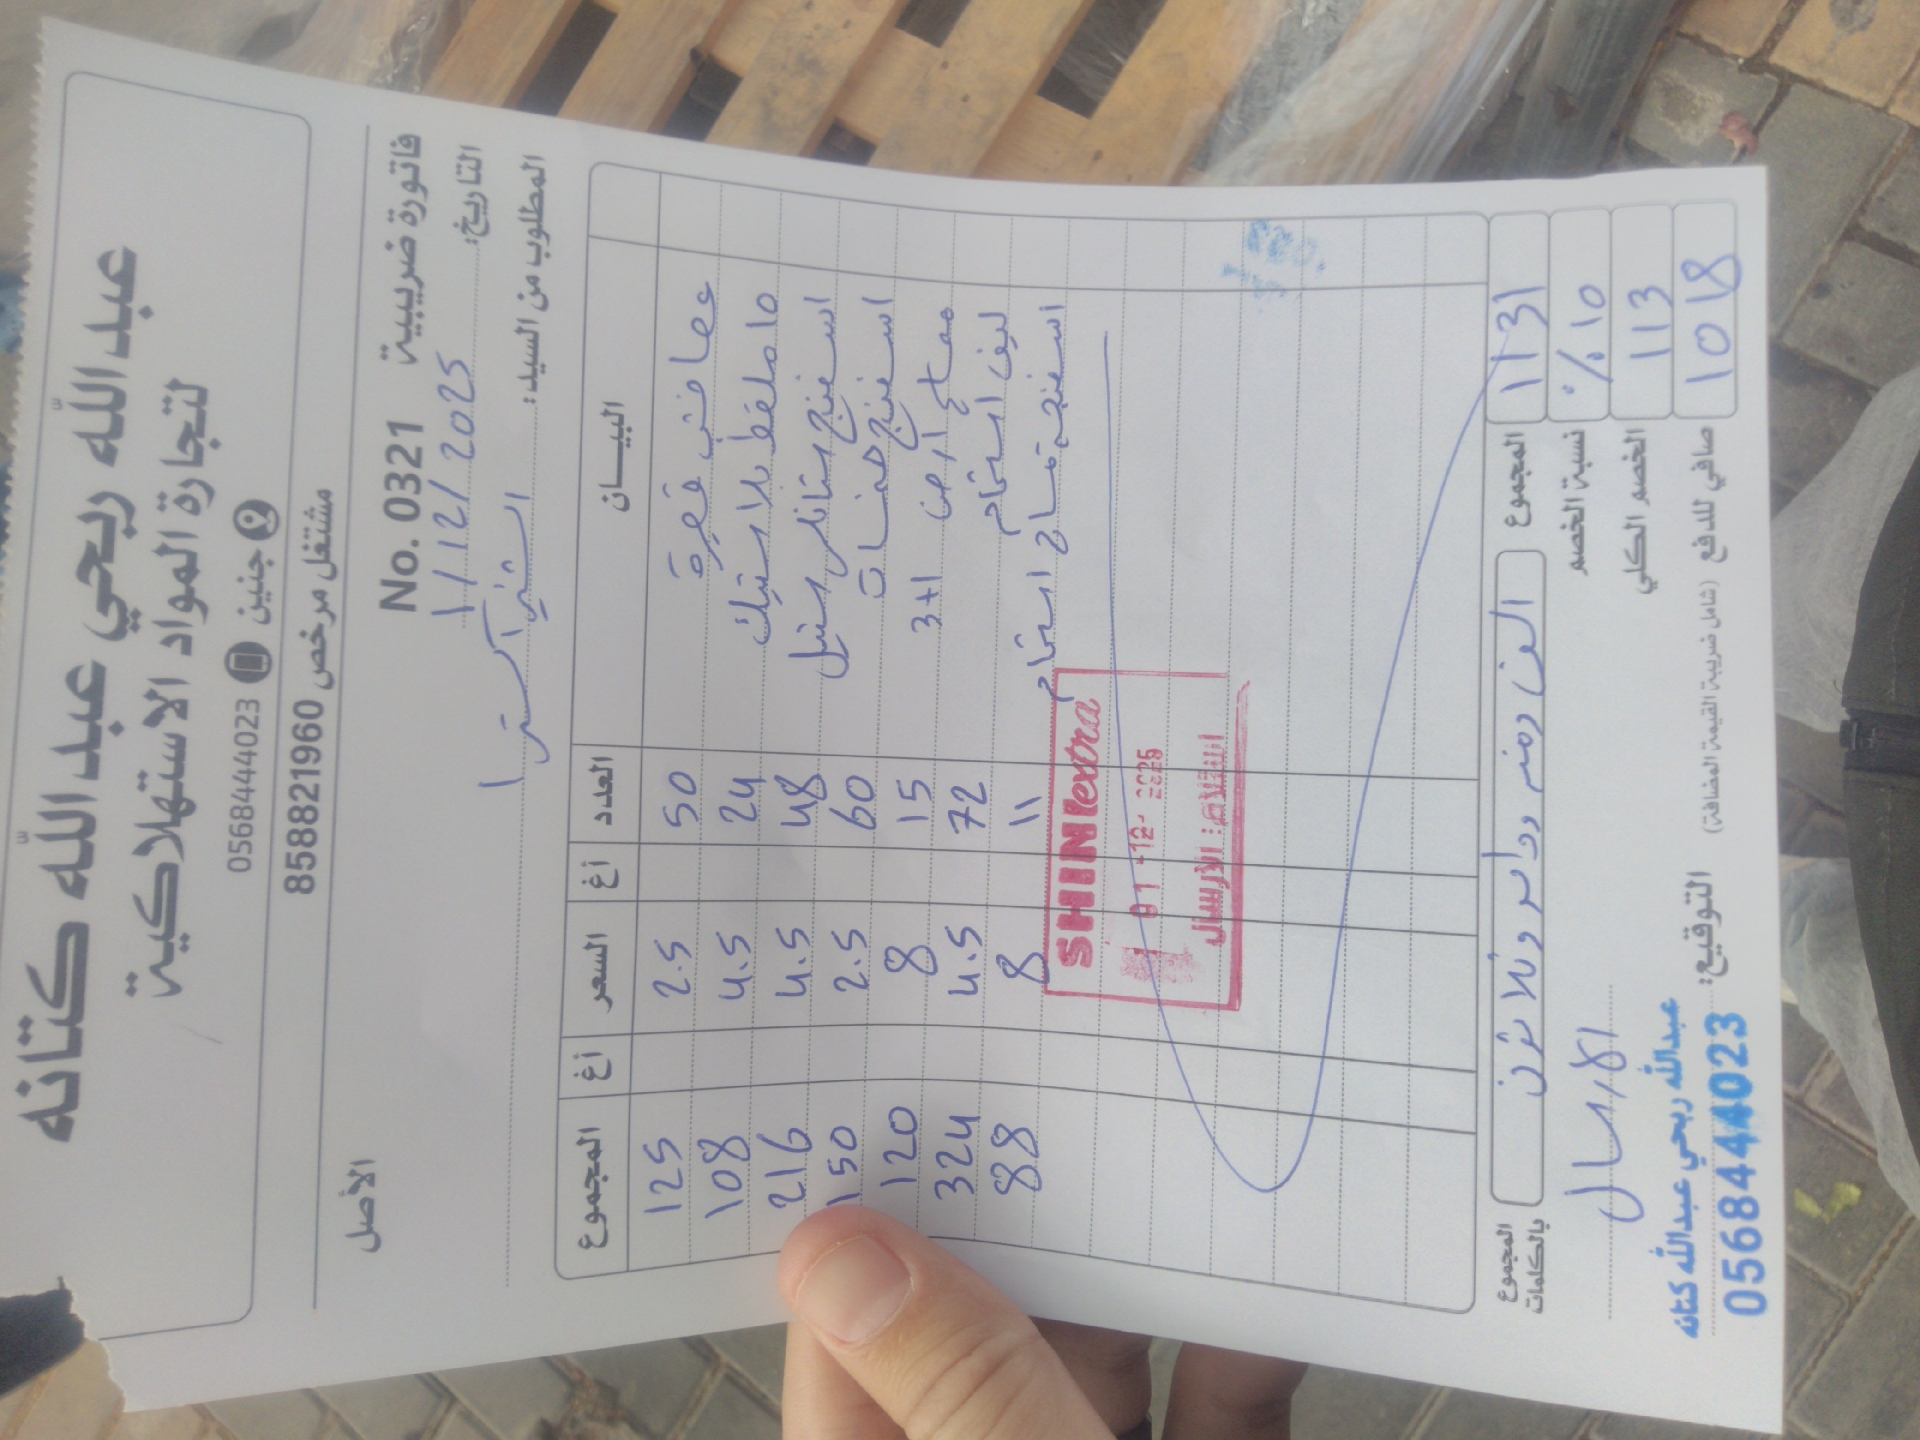 عبد الله ربحي عبد الله كتانه
لتجارة المواد الاستهلاكية
جنين 0568444023
مشتغل مرخص 858821960
فاتورة ضريبية No. 0321 الأصل
التاريخ: 1/12/2025
المطلوب من السيد:
البيـــان العدد أغ السعر أغ المجموع
عصا خشب قصيرة 50 2.5 125
ملاقط بلاستيك 24 4.5 108
اسفنج ستانلس ستيل 48 4.5 216
اسفنج 60 2.5 150
ارض 3+1 15 8 120
ليف استحمام 72 4.5 324
اسفنجة تمساح استحمام 11 8 88
SHINE extra
01-12-2025
استلام: الارسال
المجموع 1131
المجموع بالكلمات الف ومئة وواحد وثلاثون
نسبة الخصم %10
الخصم الكلي 113
صافي للدفع 1018
(شامل ضريبة القيمة المضافة)
التوقيع:
عبدالله ربحي عبدالله كتانه
0568444023